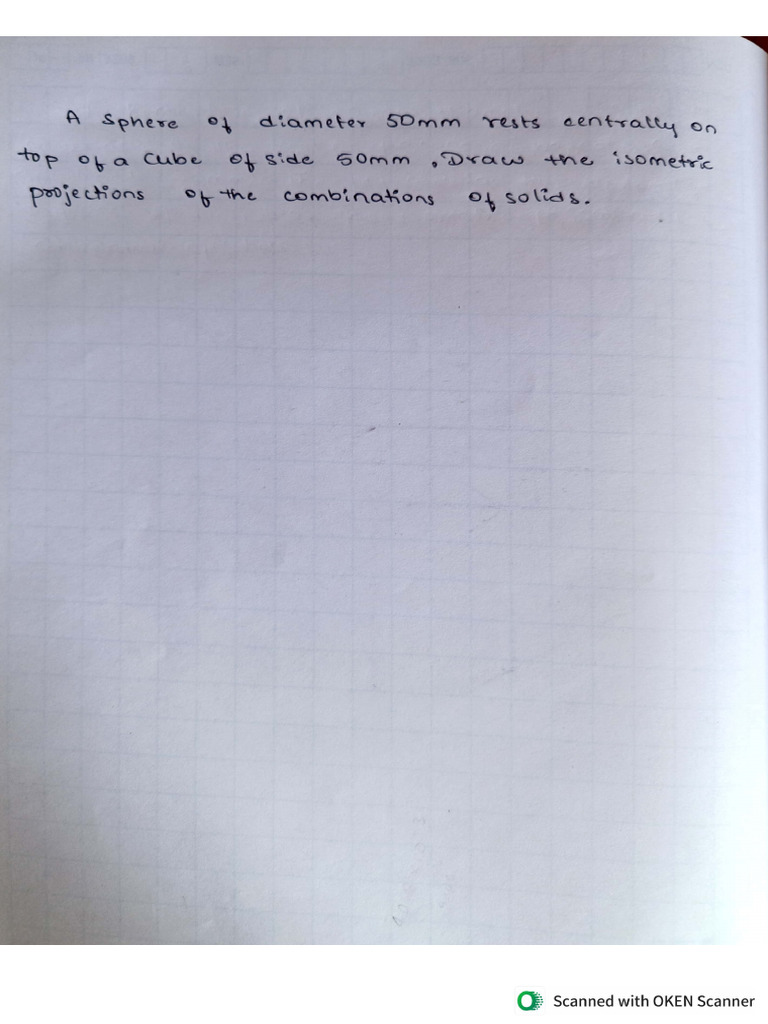 A sphere of diameter 50mm rests centrally on
top of a cube of side 50mm , Draw the isometric
projections of the combinations of solids.
Scanned with OKEN Scanner